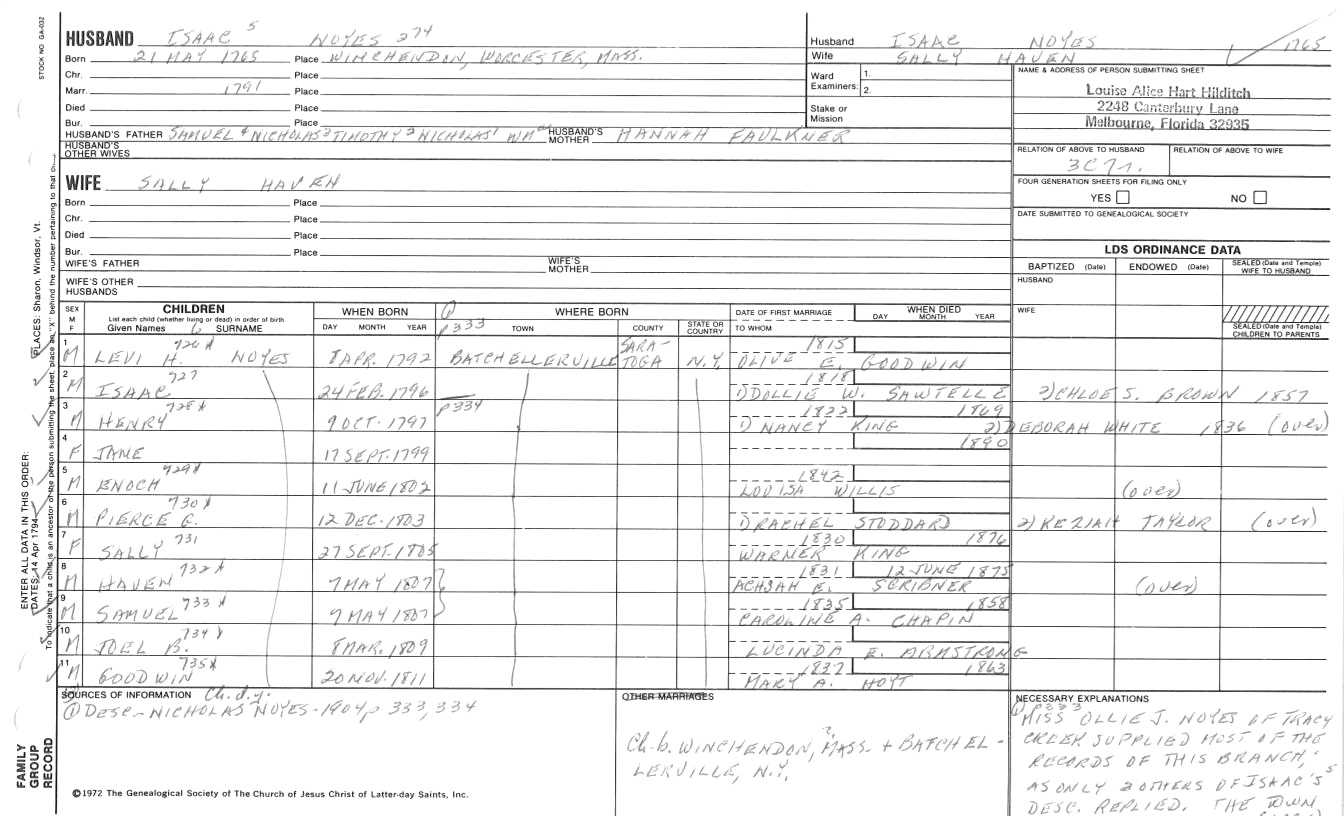 STOCK NO. GA-032
HUSBAND ISAAC 5 NOYES 274
Born 21 MAY 1765 Place WINCHENDON, WORCESTER, MASS.
Chr. Place
Marr. 1791 Place
Died Place
Bur. Place
HUSBAND'S FATHER SAMUEL 4 NICHOLAS 3 TIMOTHY 2 NICHOLAS 1 WM HUSBAND'S MOTHER HANNAH FAULKNER
HUSBAND'S OTHER WIVES
WIFE SALLY HAVEN
Born Place
Chr. Place
Died Place
Bur. Place
WIFE'S FATHER WIFE'S MOTHER
WIFE'S OTHER HUSBANDS
Husband ISAAC NOYES 1765
Wife SALLY HAVEN
Ward Examiners: 1. 2.
Stake or Mission
NAME & ADDRESS OF PERSON SUBMITTING SHEET
Louise Alice Hart Hilditch
2248 Canterbury Lane
Melbourne, Florida 32935
RELATION OF ABOVE TO HUSBAND RELATION OF ABOVE TO WIFE
FOUR GENERATION SHEETS FOR FILING ONLY
YES NO
DATE SUBMITTED TO GENEALOGICAL SOCIETY
LDS ORDINANCE DATA
BAPTIZED (Date) ENDOWED (Date) SEALED (Date and Temple) WIFE TO HUSBAND
HUSBAND
WIFE
SEALED (Date and Temple) CHILDREN TO PARENTS
SEX M F CHILDREN List each child (whether living or dead) in order of birth Given Names 6 SURNAME
WHEN BORN DAY MONTH YEAR
① p333 WHERE BORN TOWN COUNTY STATE OR COUNTRY
DATE OF FIRST MARRIAGE TO WHOM
WHEN DIED DAY MONTH YEAR
1 M LEVI H. 726 NOYES 8 APR. 1792 BATCHELLERVILLE SARATOGA N.Y. 1815 OLIVE E. GOODWIN
2 M ISAAC 727 24 FEB. 1796 1818 1) DOLLIE W. SAWTELLE 2) CHLOE S. BROWN 1857
3 M HENRY 728 9 OCT. 1797 p334 1822 1869 1) NANCY KING 2) DEBORAH WHITE 1836 (over)
4 F JANE 17 SEPT. 1799 1890
5 M ENOCH 729 11 JUNE 1802 1842 LOUISA WILLIS (over)
6 M PIERCE G. 730 12 DEC. 1803 1) RACHEL STODDARD 2) KEZIAH TAYLOR (over)
7 F SALLY 731 27 SEPT. 1805 1830 1876 WARNER KING
8 M HAVEN 732 7 MAY 1807 1831 12 JUNE 1875 ACHSAH E. SCRIBNER (over)
9 M SAMUEL 733 7 MAY 1807 1835 1858 CAROLINE A. CHAPIN
10 M JOEL B. 734 8 MAR. 1809 LUCINDA E. ARMSTRONG
11 M GOODWIN 735 20 NOV. 1811 1837 1863 MARY A. HOYT
SOURCES OF INFORMATION Ch. d.y.
① DESC.-NICHOLAS NOYES-1904 p 333, 334
OTHER MARRIAGES
Ch. b. WINCHENDON, MASS. ? + BATCHEL-
LERVILLE, N.Y.
NECESSARY EXPLANATIONS
① p333
"MISS OLLIE J. NOYES OF TRACY
CREEK SUPPLIED MOST OF THE
RECORDS OF THIS BRANCH,"
AS ONLY 2 OTHERS OF ISAAC'S 5
DESC. REPLIED. THE TOWN
©1972 The Genealogical Society of The Church of Jesus Christ of Latter-day Saints, Inc.
FAMILY
GROUP
RECORD
ENTER ALL DATA IN THIS ORDER:
DATES: 14 Apr 1794
PLACES: Sharon, Windsor, Vt.
To indicate that a child is an ancestor of the person submitting the sheet, place an "X" behind the number pertaining to that